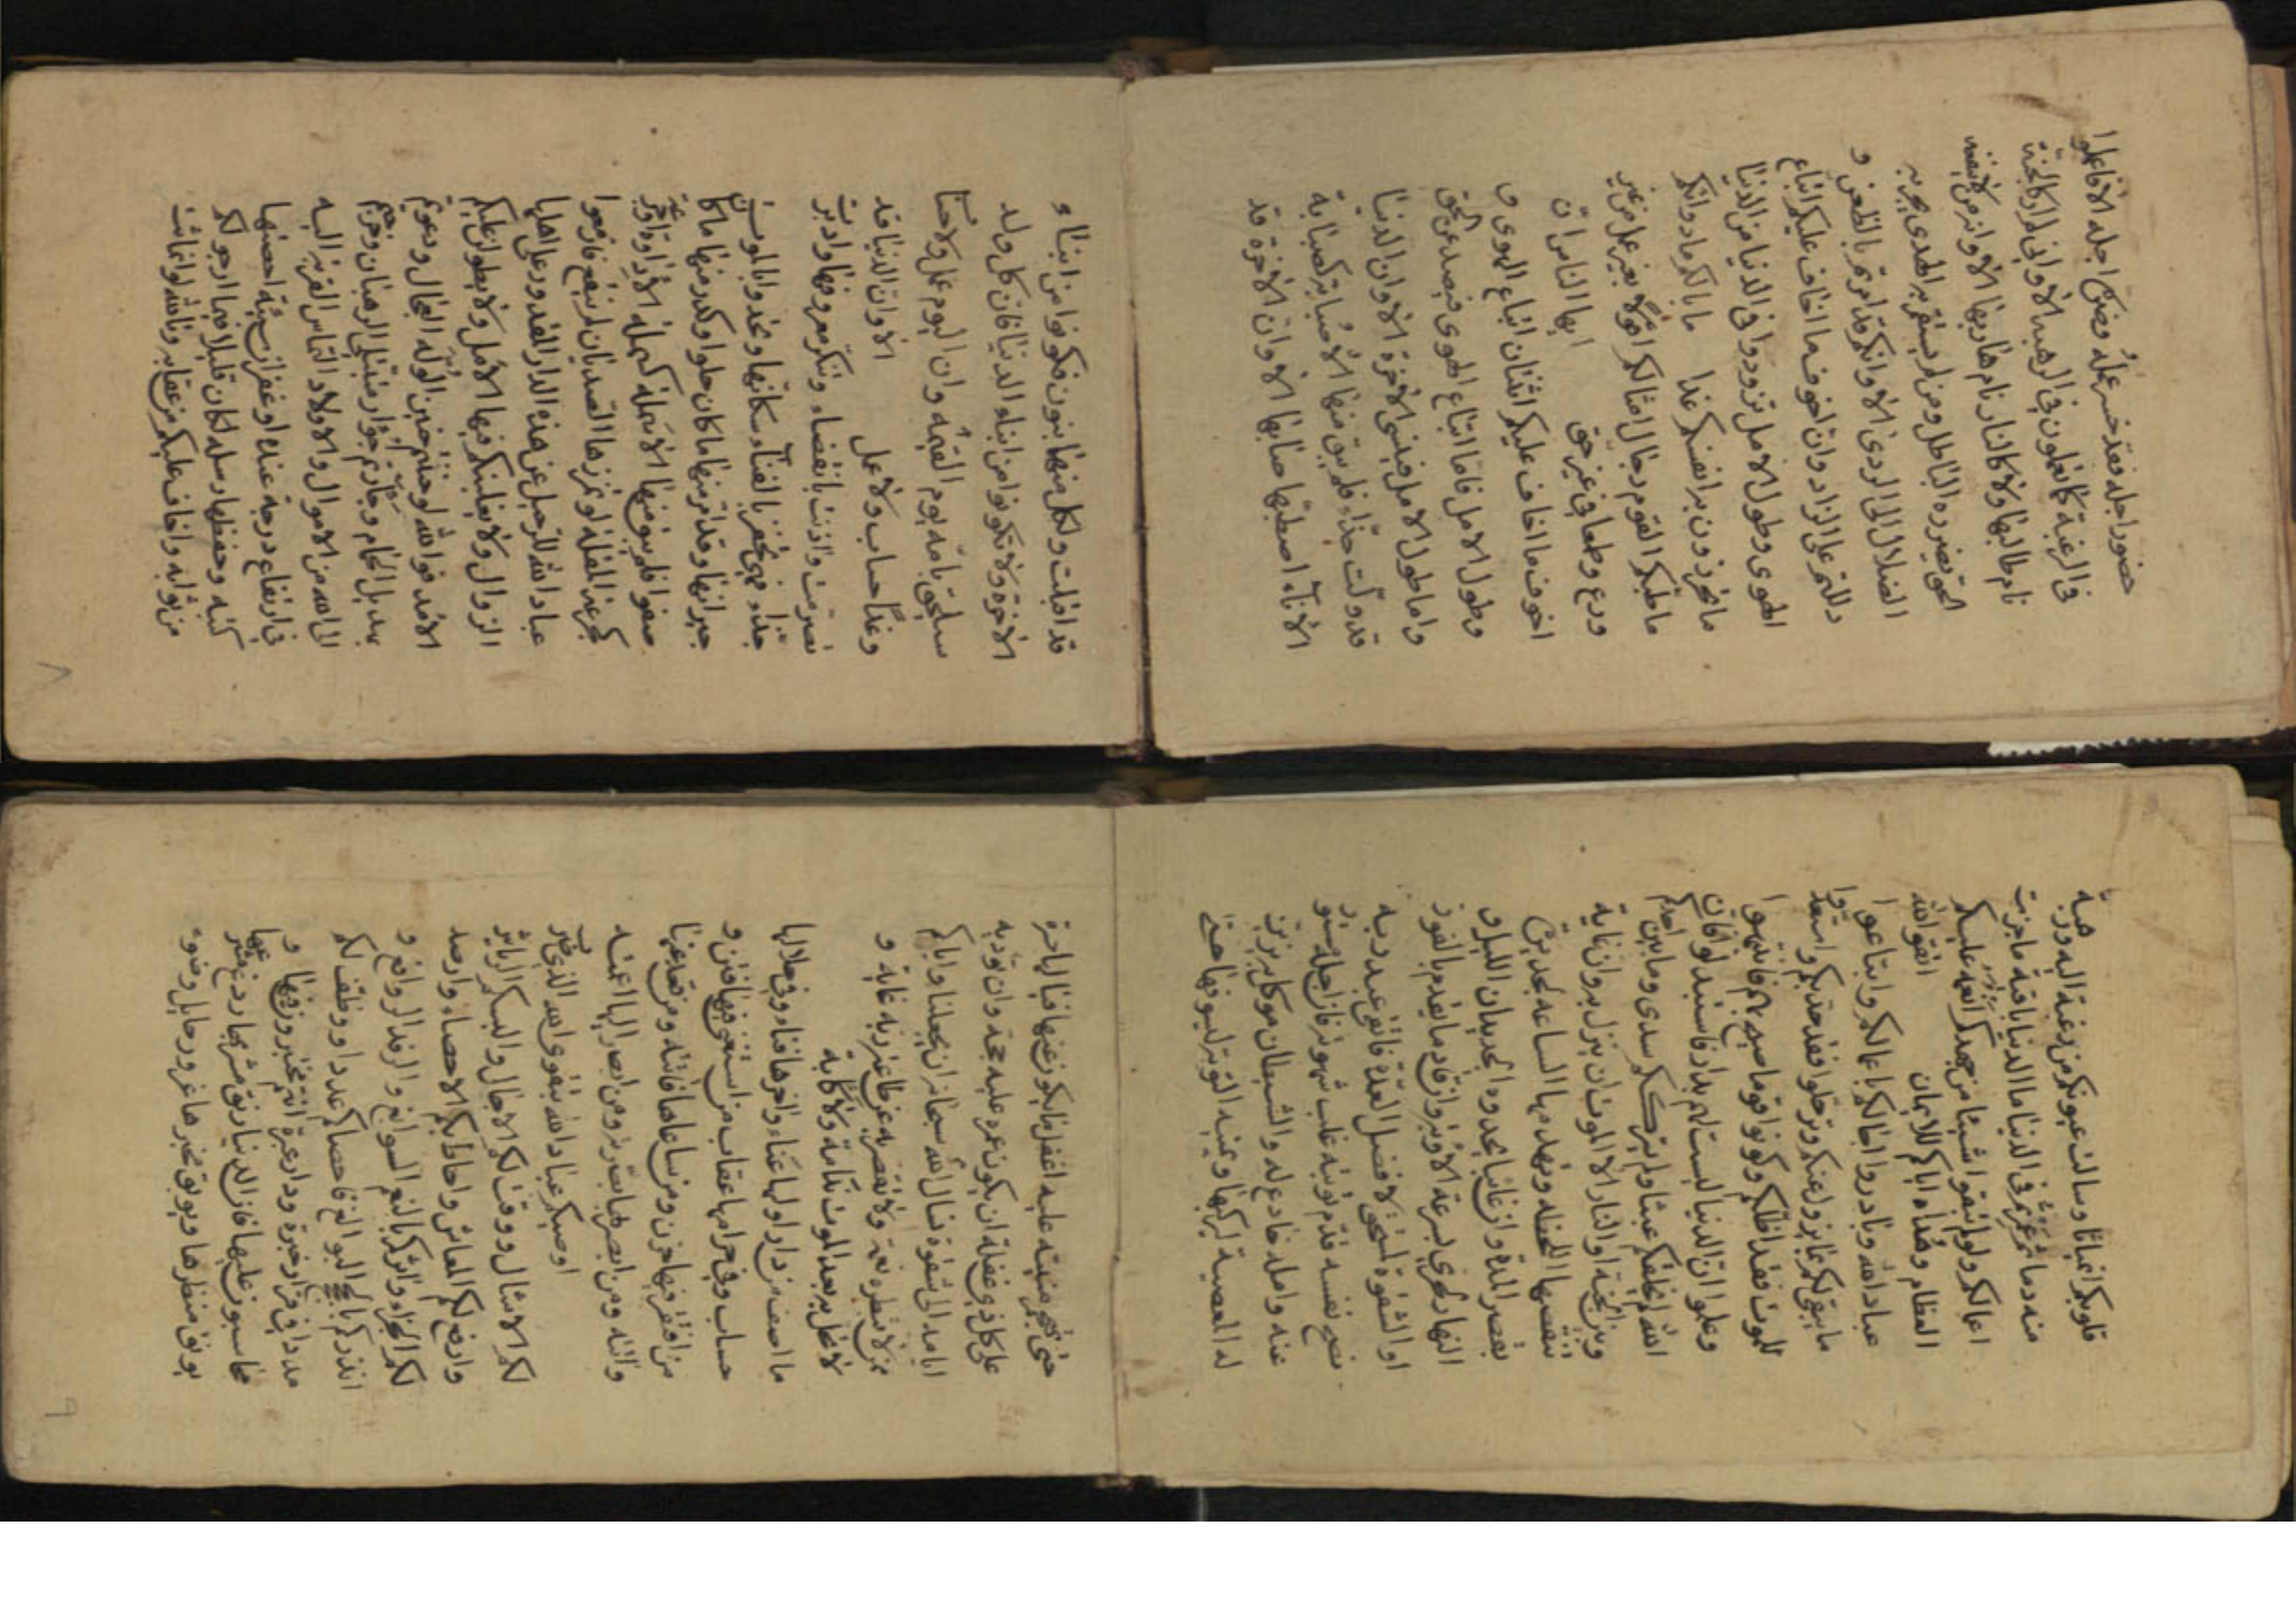 حضور اجله فقد خسر عمله وضره اجله الا فاعملوا
في الرغبة كما تعملون في الرهبة الا واني لم ار كالجنة
نام طالبها ولا كالنار نام هاربها الا وانه من لا ينفعه
الحق يضرره الباطل ومن لم يستقم به الهدى يجر به
الضلال الى الردى الا وانكم قد امرتم بالظعن و
دللتم على الزاد وان اخوف ما اخاف عليكم اتباع
الهوى وطول الامل تزودوا في الدنيا من الدنيا
ما تحرزون به انفسكم غدا ما بالكم ما دواؤكم
ما طبكم القوم رجال امثالكم اقولا بغير عمل من غير
ورع وطمعا في غير حق ايها الناس ان
اخوف ما اخاف عليكم اثنتان اتباع الهوى و
وطول الامل فاما اتباع الهوى فيصد عن الحق
واما طول الامل فينسي الاخرة الا وان الدنيا
قد ولت حذاء فلم يبق منها الا صبابة كصبابة
الاناء اصطبها صابها الا وان الاخرة قد
قد اقبلت ولكل منهما بنون فكونوا من ابناء
الاخرة ولا تكونوا من ابناء الدنيا فان كل ولد
سيلحق بامه يوم القيمة وان اليوم عمل ولا حساب
وغدا حساب ولا عمل الا وان الدنيا قد
تصرمت واذنت بانقضاء وتنكر معروفها وادبرت
حذاء فهي تحفز بالفناء سكانها وتحدو بالموت
جيرانها وقد امر منها ما كان حلوا وكدر منها ما كان
صفوا فلم يبق منها الا سملة كسملة الاداوة او جرعة
كجرعة المقلة لو تمززها الصديان لم ينقع فازمعوا
عباد الله الرحيل عن هذه الدار المقدور على اهلها
الزوال ولا يغلبنكم فيها الامل ولا يطولن عليكم
الامد فوالله لو حننتم حنين الوله العجال ودعوتم
بهديل الحمام وجارتم جؤار متبتلي الرهبان وخرجتم
الى الله من الاموال والاولاد التماس القربة اليه
في ارتفاع درجة عنده او غفران سيئة احصتها
كتبه وحفظها رسله لكان قليلا فيما ارجو لكم
من ثوابه واخاف عليكم من عقابه وتالله لو انماثت
٨
قلوبكم انمياثا وسالت عيونكم من رغبة اليه ورهبة
منه دما ثم عمرتم في الدنيا ما الدنيا باقية ما جزت
اعمالكم ولو لم تبقوا شيئا من جهدكم انعمه عليكم
العظام وهداه اياكم للايمان اتقوا الله
عباد الله وبادروا اجالكم باعمالكم وابتاعوا
ما يبقى لكم بما يزول عنكم وترحلوا فقد جد بكم واستعدوا
للموت فقد اظلكم وكونوا قوما صيح بهم فانتبهوا
وعلموا ان الدنيا ليست لهم بدار فاستبدلوا فان
الله لم يخلقكم عبثا ولم يترككم سدى وما بين احدكم
وبين الجنة او النار الا الموت ان ينزل به وان غاية
تنقصها اللحظة وتهدمها الساعة لجديرة
بقصر المدة وان غائبا يحدوه الجديدان الليل و
النهار لحري بسرعة الاوبة وان قادما يقدم بالفوز
او الشقوة لمستحق لافضل العدة فاتقى عبد ربه
نصح نفسه قدم توبته غلب شهوته فان اجله مستور
عنه وامله خادع له والشيطان موكل به يزين
له المعصية ليركبها ويمنيه التوبة ليسوفها حتى
حتى تهجم منيته عليه اغفل ما يكون عنها فيا لها حسرة
على كل ذي غفلة ان يكون عمره عليه حجة وان توديه
ايامه الى شقوة نسال الله سبحانه ان يجعلنا واياكم
ممن لا تبطره نعمة ولا تقصر به عن طاعة ربه غاية و
لا تحل به بعد الموت ندامة ولا كابة
ما اصف من دار اولها عناء واخرها فناء وفي حلالها
حساب وفي حرامها عقاب من استغنى فيها فتن و
من افتقر فيها حزن ومن ساعاها فاتته ومن قعد عنها
واتته ومن ابصر بها بصرته ومن ابصر اليها اعمته
اوصيكم عباد الله بتقوى الله الذي ضرب
لكم الامثال ووقت لكم الاجال والبسكم الرياش
وارفغ لكم المعاش واحاط بكم الاحصاء وارصد
لكم الجزاء واثركم بالنعم السوابغ والرفد الروافغ و
انذركم بالحجج البوالغ فاحصاكم عددا ووظف لكم
مددا في قرار خبرة ودار عبرة انتم مختبرون فيها و
محاسبون عليها فان الدنيا رنق مشربها ردغ مشرعها
يونق منظرها ويوبق مخبرها غرور حائل وضوء
٩